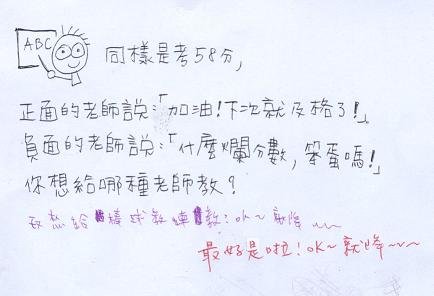 ABC
同樣是考58分,
正面的老師說:「加油!下次就及格了!」
負面的老師說:「什麼爛分數,笨蛋嗎!」
你想給哪種老師教?
我想給棒球教練教!OK~就降~~
最好是啦!OK~就降~~~